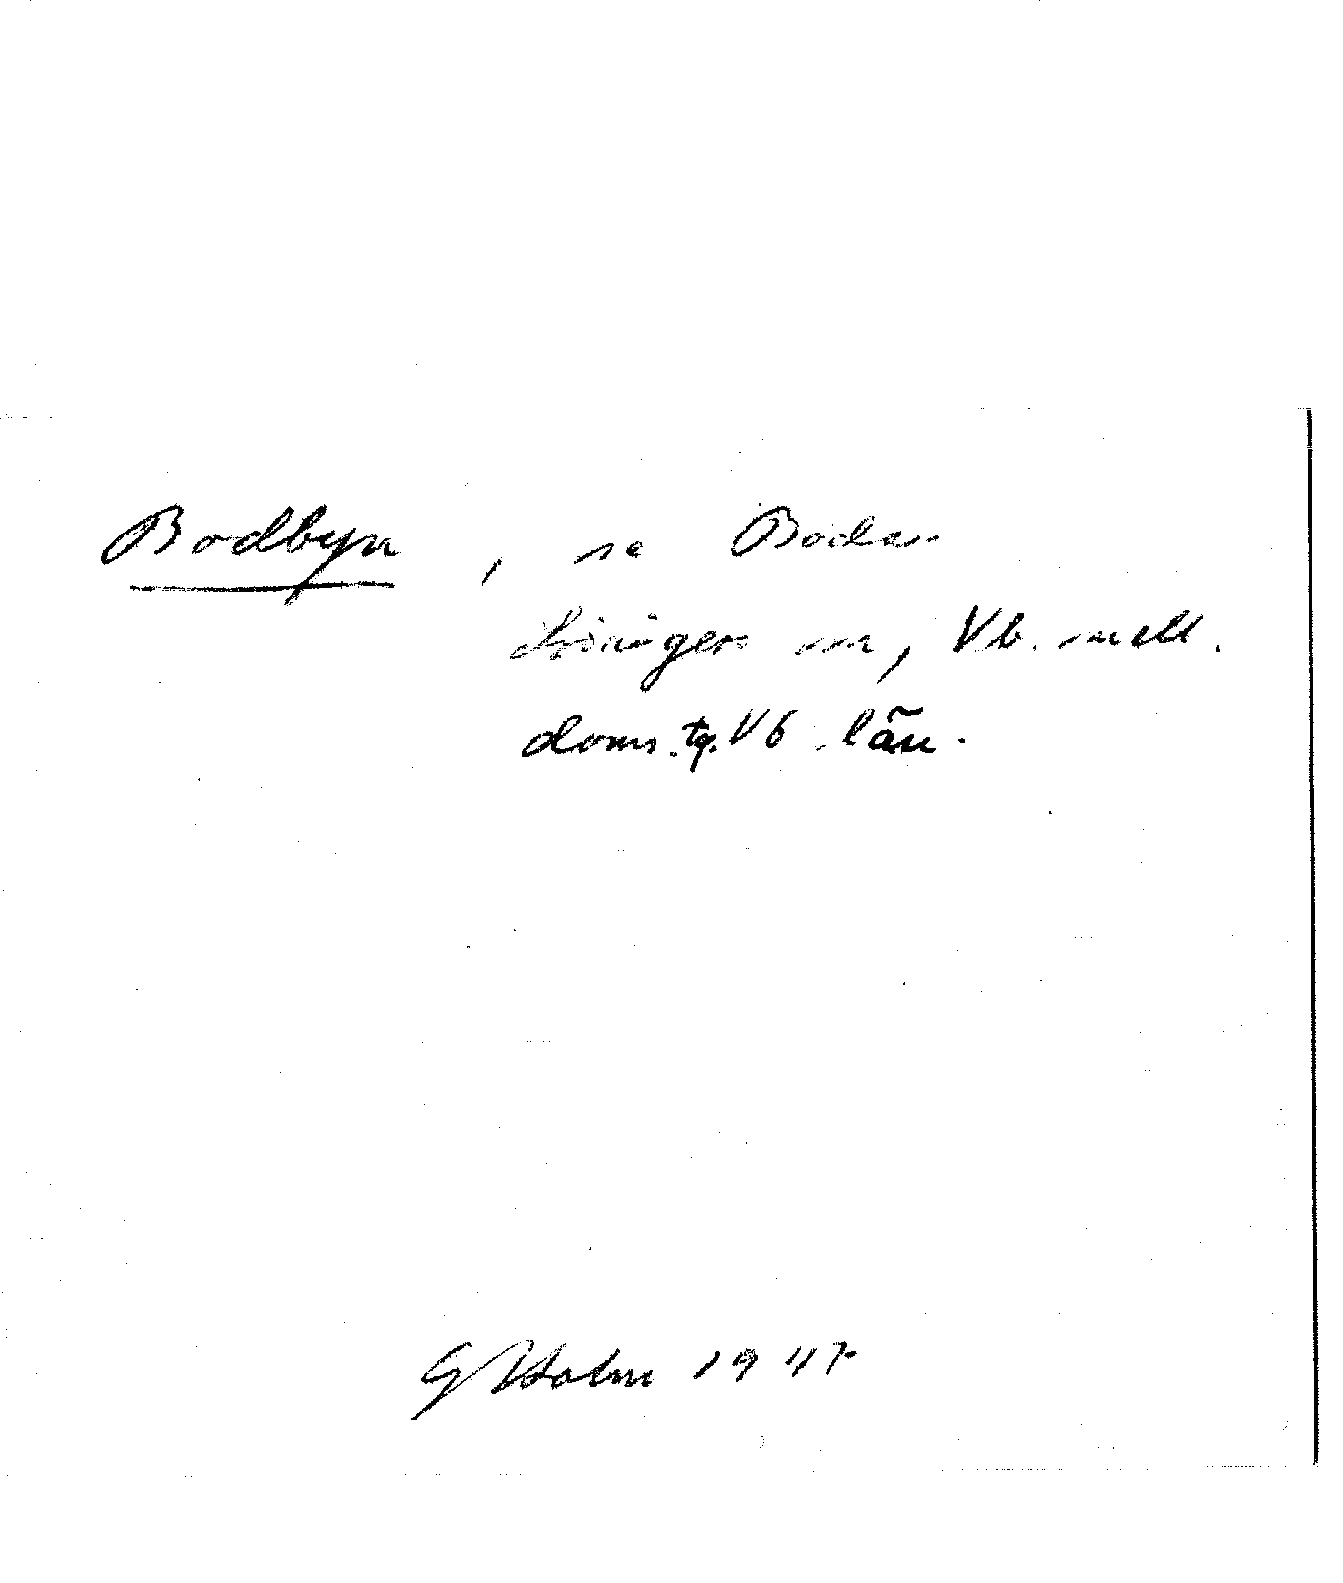 Bodbyn, se Bodan
Lövångers sn, Vb. mell.
doms.tg. Vb län.
G Holm 1947